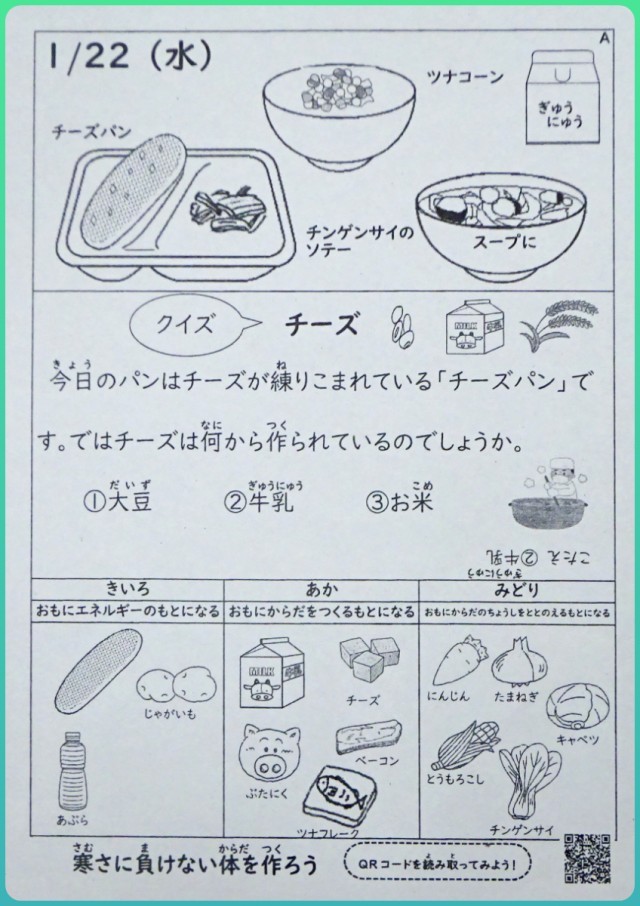 A
1/22（水）
ツナコーン
ぎゅう
にゅう
チーズパン
チンゲンサイの
ソテー
スープに
クイズ
チーズ
MILK
きょう ね
今日のパンはチーズが練りこまれている「チーズパン」で
なに つく
す。ではチーズは何から作られているのでしょうか。
だいず ぎゅうにゅう こめ
①大豆 ②牛乳 ③お米
ぎゅうにゅう
こたえ ②牛乳
きいろ
おもにエネルギーのもとになる
じゃがいも
あぶら
あか
おもにからだをつくるもとになる
MILK
チーズ
ぶたにく
ベーコン
ツナフレーク
みどり
おもにからだのちょうしをととのえるもとになる
にんじん
たまねぎ
キャベツ
とうもろこし
チンゲンサイ
さむ ま からだ つく
寒さに負けない体を作ろう
よ と
QRコードを読み取ってみよう！